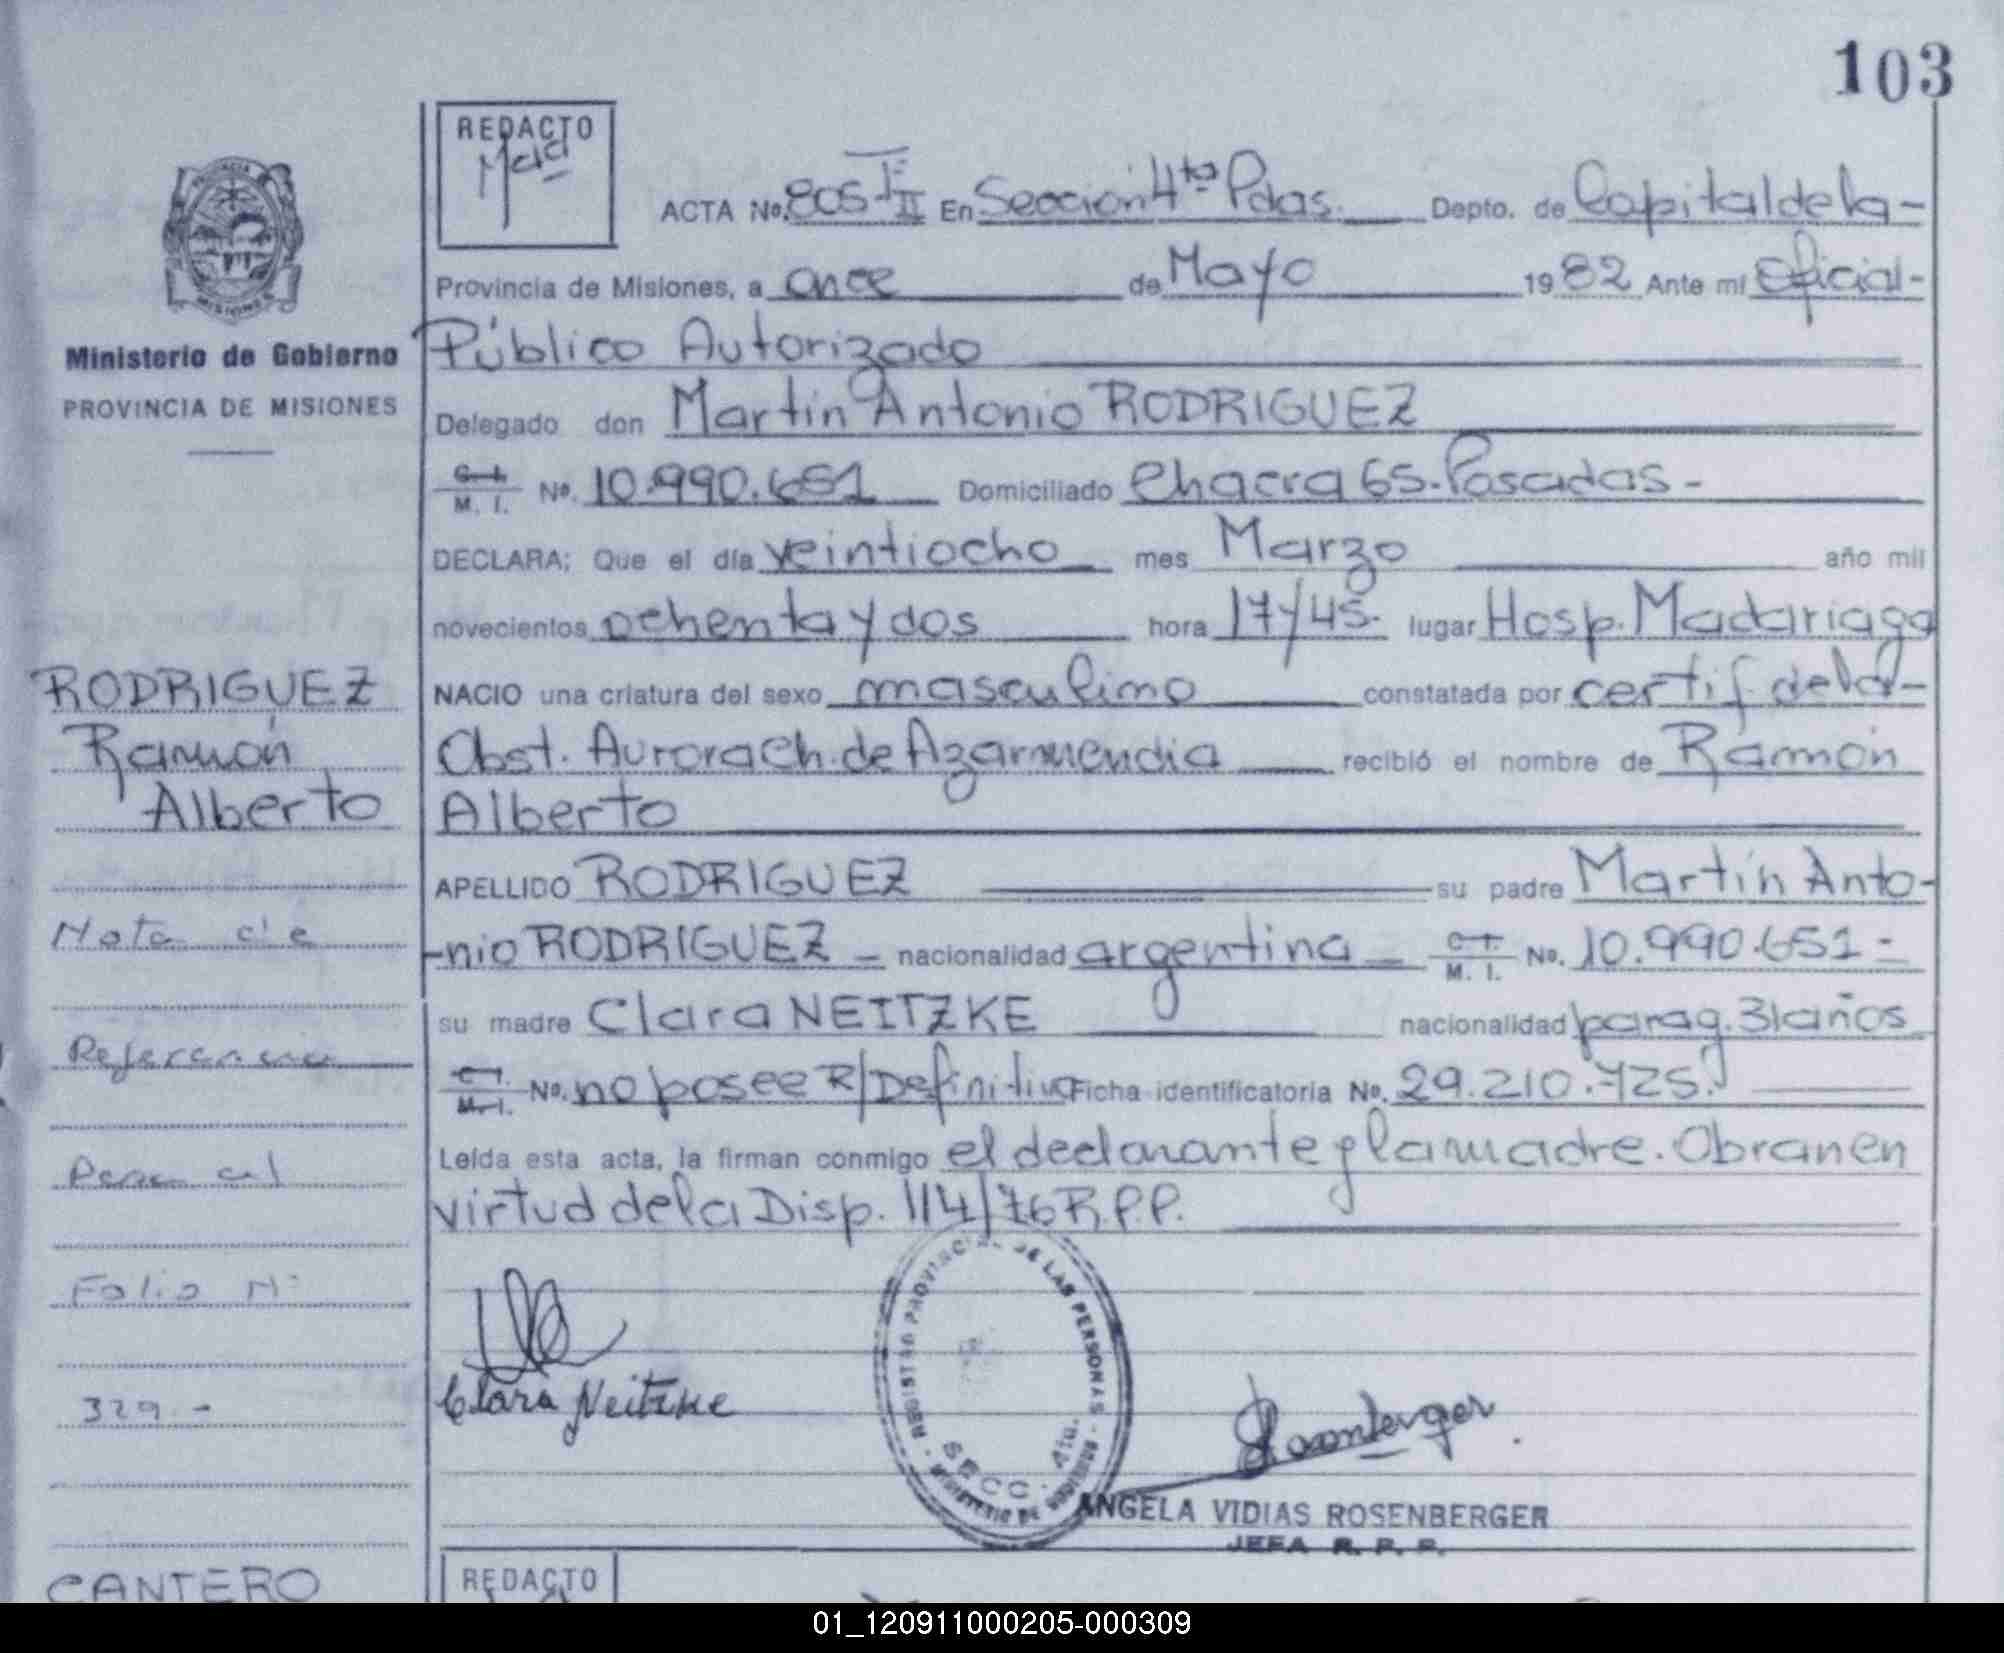 103
REDACTO
ACTA No. 805 TºII En Sección 4ta Pdas. Depto. de Capital de la -
Provincia de Misiones, a once de Mayo 1982 Ante mi Oficial -
Público Autorizado
Delegado don Martin Antonio RODRIGUEZ
C. I. M. I. No. 10.990.651 Domiciliado Chacra 65. Posadas -
DECLARA: Que el día veintiocho mes Marzo año mil
novecientos ochenta y dos hora 17/45. lugar Hosp. Madariaga
NACIO una criatura del sexo masculino constatada por certif. de la -
Obst. Aurora Ch. de Azarmendia recibió el nombre de Ramón
Alberto
APELLIDO RODRIGUEZ su padre Martín Anto-
-nio RODRIGUEZ - nacionalidad argentina - C. I. M. I. No. 10.990.651 -
su madre Clara NEITZKE nacionalidad parag. 31 años
C. I. M. I. No. no posee R/Definitiva Ficha identificatoria No. 29.210.725.
Leída esta acta, la firman conmigo el declarante y la madre. Obran en
virtud de la Disp. 114/76 R.P.P.
Clara Neitzke
REGISTRO PROVINCIAL DE LAS PERSONAS - MINISTERIO DE GOBIERNO -
SECC. 4ta.
Rosenberger
ANGELA VIDIAS ROSENBERGER
JEFA R. P. P.
Ministerio de Gobierno
PROVINCIA DE MISIONES
RODRIGUEZ
Ramón
Alberto
Nota de
Referencia
Folio Nº
329 -
CANTERO
REDACTO
01_120911000205-000309